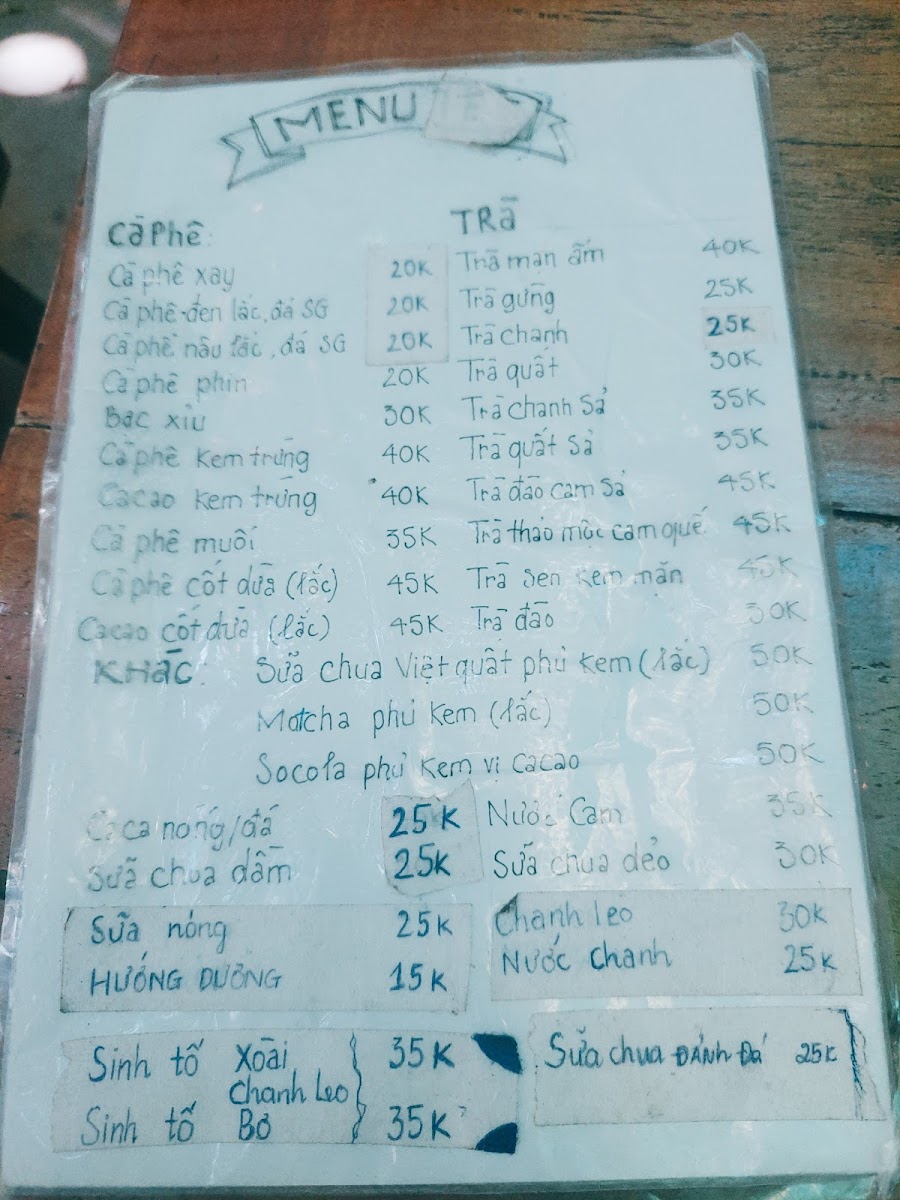 MENU
Cà Phê:
Cà phê xay 20K
Cà phê đen lắc, đá SG 20K
Cà phê nâu lắc, đá SG 20K
Cà phê phin 20K
Bạc xỉu 30K
Cà phê kem trứng 40K
Cacao kem trứng 40K
Cà phê muối 35K
Cà phê cốt dừa (lắc) 45K
Cacao cốt dừa (lắc) 45K
TRÀ
Trà mạn ấm 40K
Trà gừng 25K
Trà chanh 25K
Trà quất 30K
Trà chanh sả 35K
Trà quất sả 35K
Trà đào cam sả 45K
Trà thảo mộc cam quế 45K
Trà sen kem mặn 45K
Trà đào 30K
KHÁC:
Sữa chua Việt quất phủ kem (lắc) 50K
Matcha phủ kem (lắc) 50K
Socola phủ kem vị cacao 50K
nóng/đá 25K
Sữa chua dầm 25K
Nước Cam 35K
Sữa chua dẻo 30K
Sữa nóng 25K
HƯỚNG DƯƠNG 15K
Chanh leo 30K
Nước chanh 25K
Sinh tố Xoài 35K
Chanh Leo
Sinh tố Bơ 35K
Sữa chua ĐÁNH ĐÁ 25K